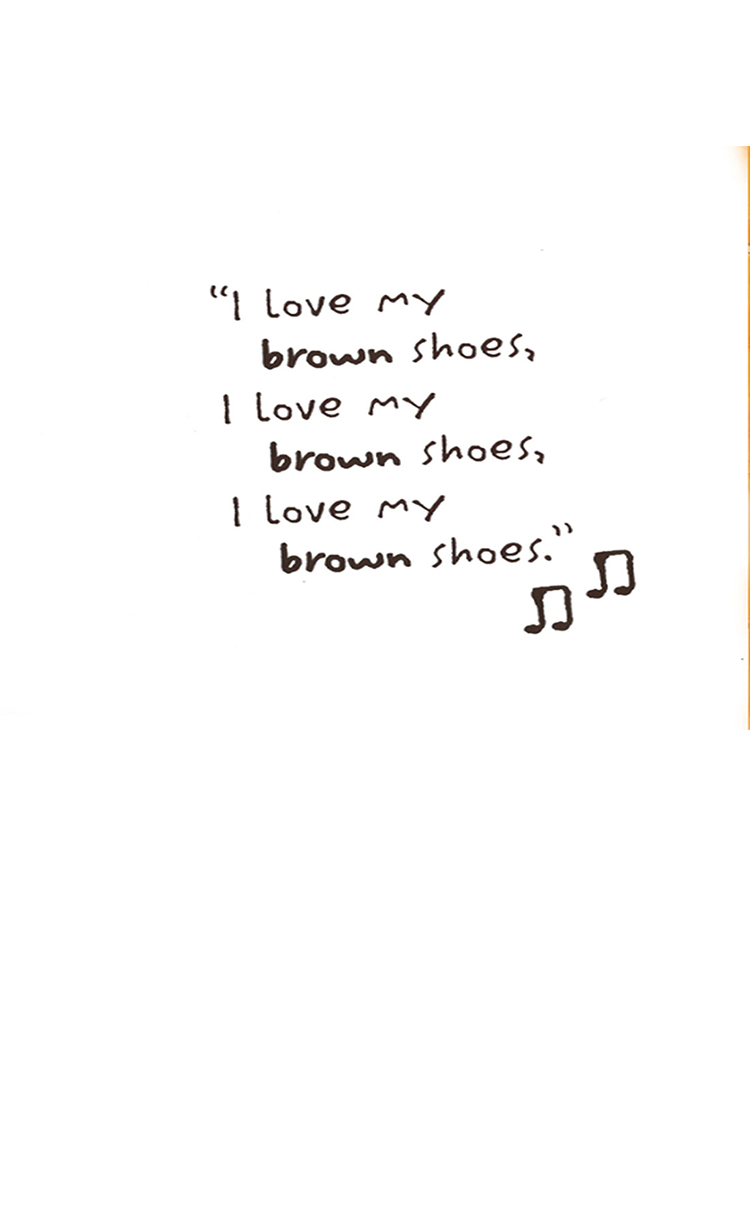 “I love my
brown shoes,
I love my
brown shoes,
I love my
brown shoes.”